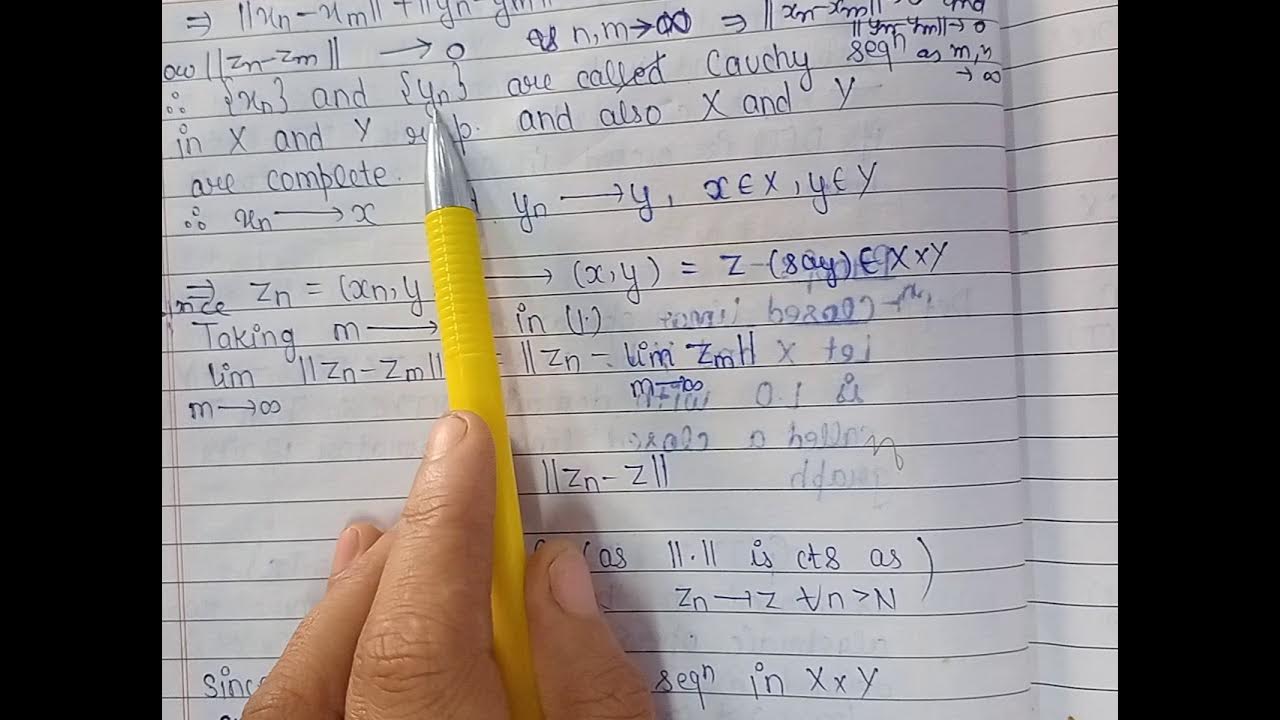 ⇒ ||xn - xm|| + ||yn - ym||
as n, m → ∞ ⇒ ||xn - xm|| → 0 and
||yn - ym|| → 0
||zn - zm|| → 0
as m, n → ∞
∴ {xn} and {yn} are called Cauchy seqn
in X and Y resp. and also X and Y
are complete.
∴ xn → x yn → y, x ∈ X, y ∈ Y
zn = (xn, y → (x, y) = z (say) ∈ X x Y
Taking m → in (1.)
lim ||zn - zm|| = ||zn - lim zm||
m → ∞ m → ∞
||zn - z||
(as ||.|| is cts as
zn → z ∀n > N)
Since seqn in X x Y